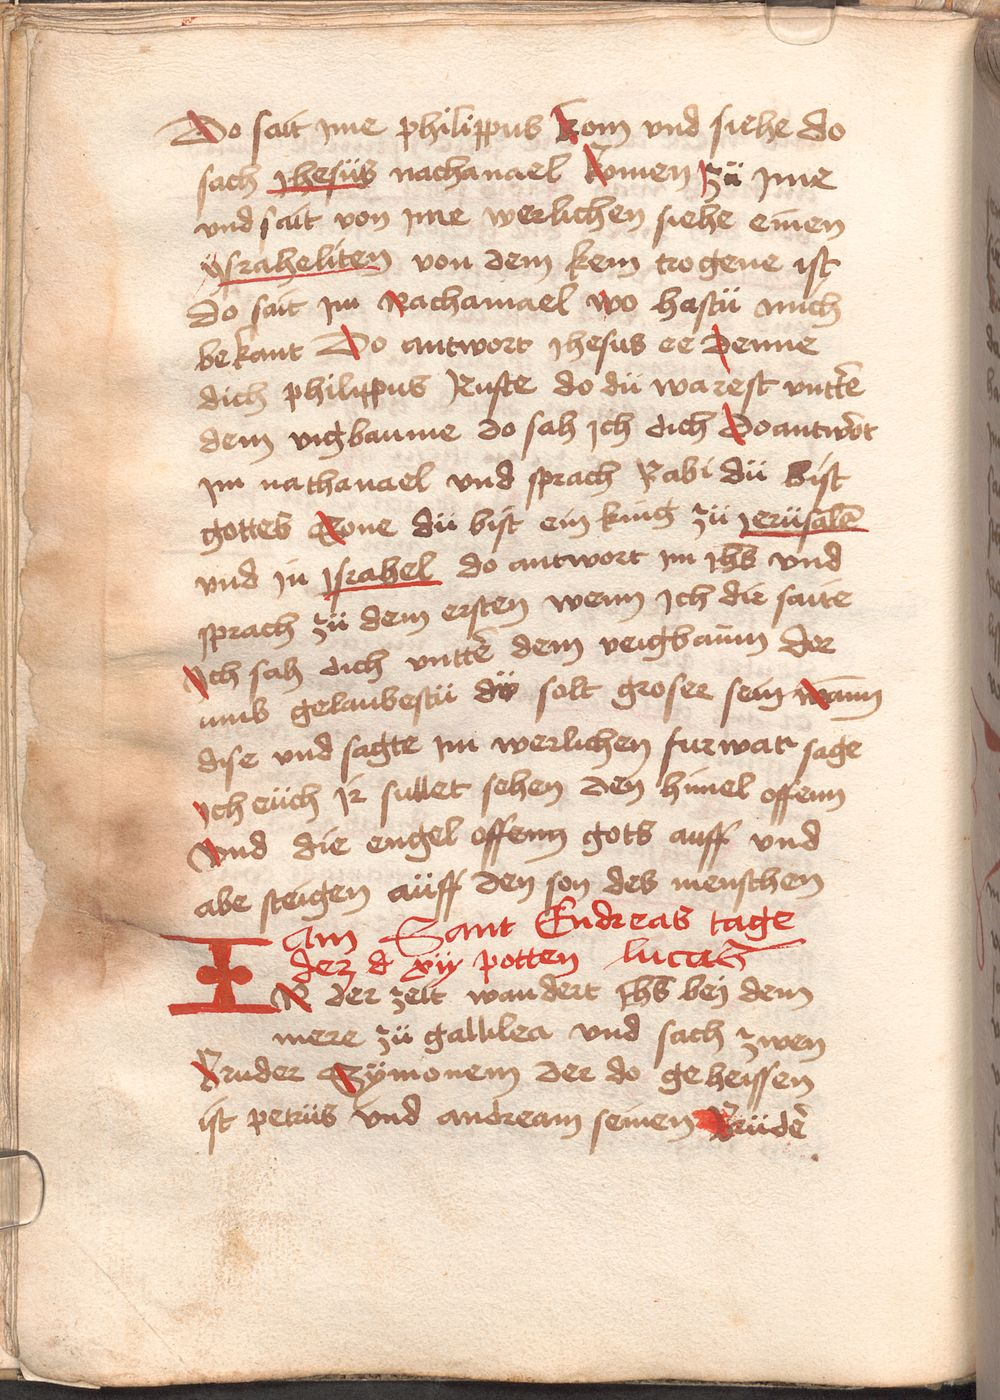 Do sait ime philippus kom vnd siehe do
sach Jhesüs nathanael komen zü ime
vnd sait von ime werlichen siehe einen
ysraheliten von dem kein trogene ist
do sait im Nathanael wo hastü mich
bekant Do antwort Jhesus ee denne
dich philippus Ruste do dü warest vnttē
dem vigbaume do sah ich dich Do antwort
im nathanael vnd sprach Rabi dü bist
gottes Sone dü bist ein king zü jerüsalē
vnd in Jsrahel do antwort im Jhs vnd
sprach zü dem ersten wenn ich dir saite
Ich sah dich vnttē dem veigbaüm dor
umb gelaubestü dü solt groser sein wann
dise vnd sagte im werlichen furwar sage
ich eüch ir sullet sehen den himel offenn
Vnd die engel offenn gots auff vnd
abe steigen aüff den son des menschen
Am Sant Endreas tage
der d xij potten lucas
IN der zeit wandert Jhs bej dem
mere zü gallilea vnd sach zwen
Bruder Symonem der do geheissen
ist petrüs vnd andream seinen Brüdē